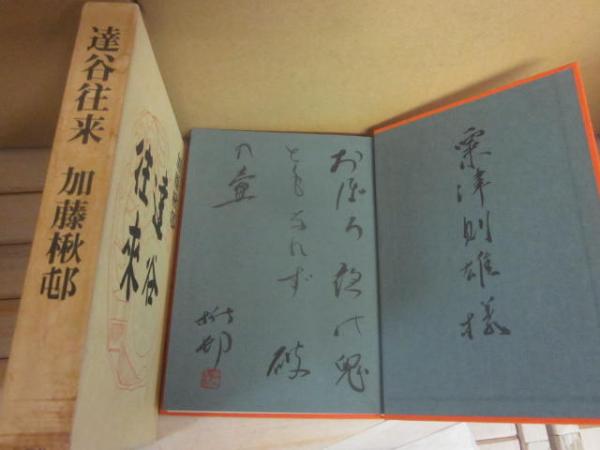 達谷往来 加藤楸邨
達谷
往来
粟津則雄様
おぼろ夜の鬼
ともなれず 破
れ壺
楸邨